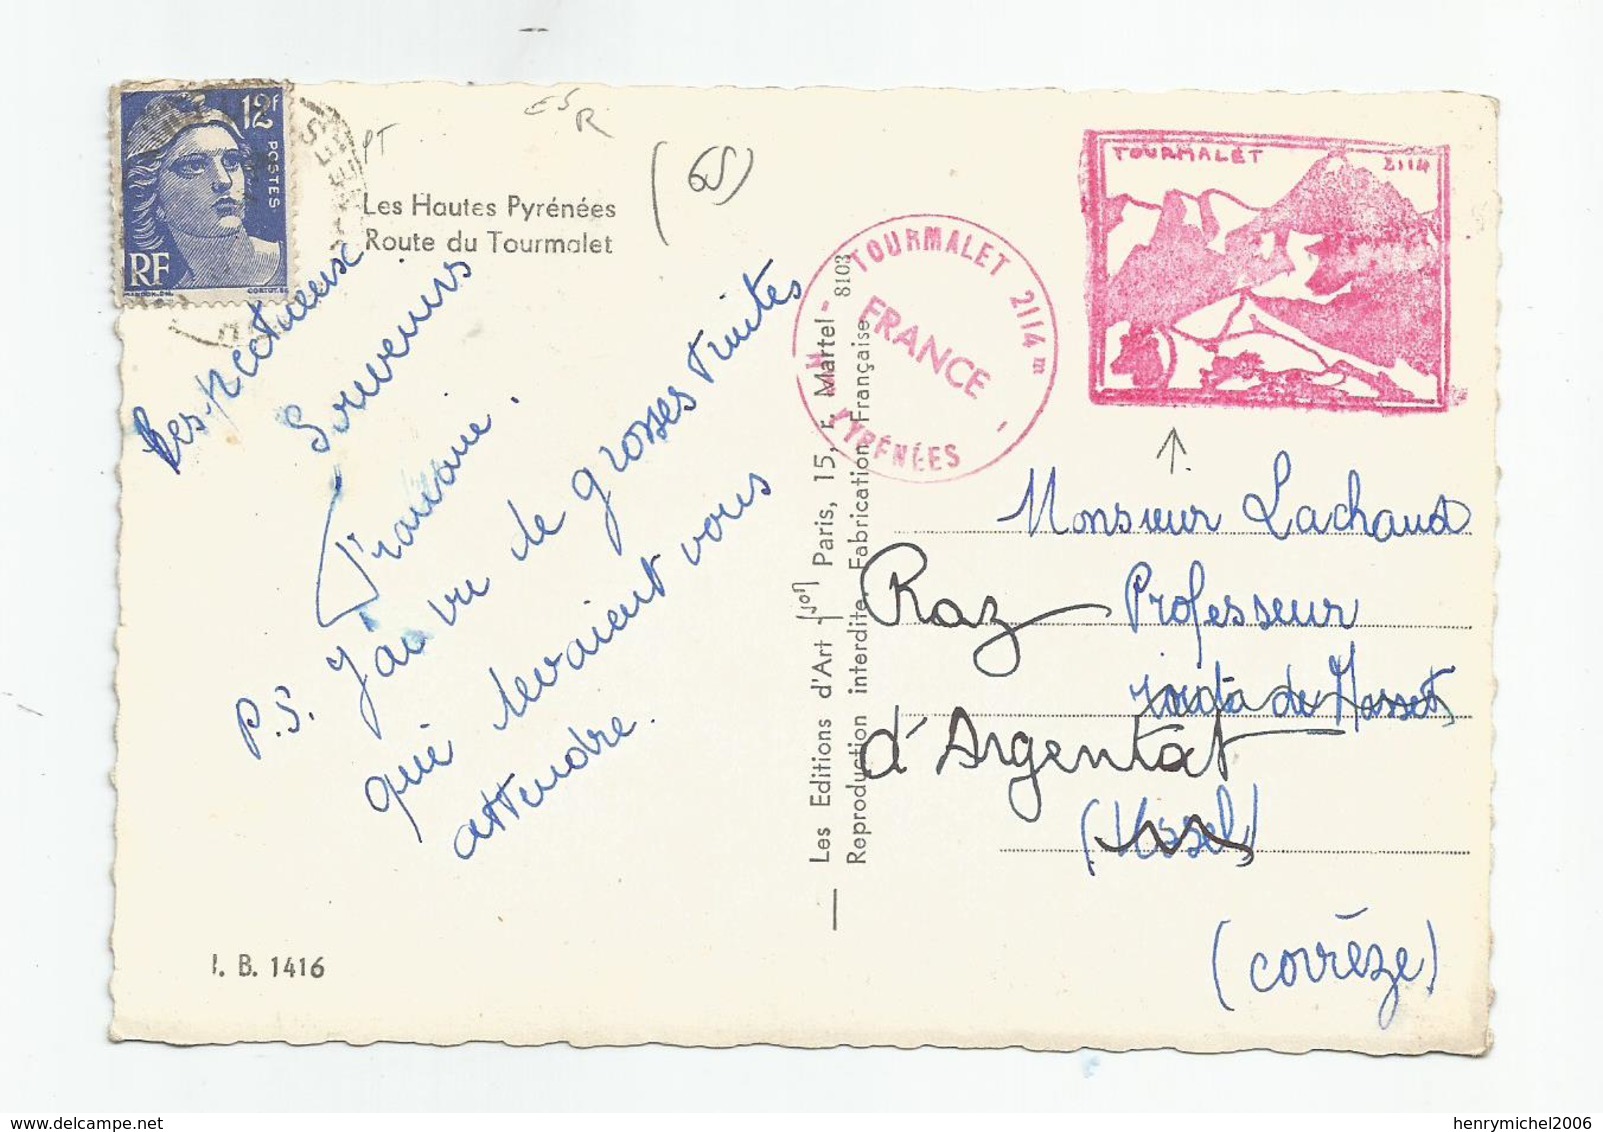 12f
POSTES
RF
PT
ES
R
(65)
Les Hautes Pyrénées
Route du Tourmalet
Respectueux
Souvenirs
P.S. J'ai vu de grosses truites
qui devaient vous
attendre.
I. B. 1416
Les Editions d'Art
Paris, 15, r. Martel 8103
Reproduction interdite. Fabrication Française
TOURMALET 2114 m
FRANCE
PYRÉNÉES
TOURMALET 2114
Monsieur Lachaud
Raz Professeur
d'Argentat
(Ussel)
(Corrèze)
henrymichel2006